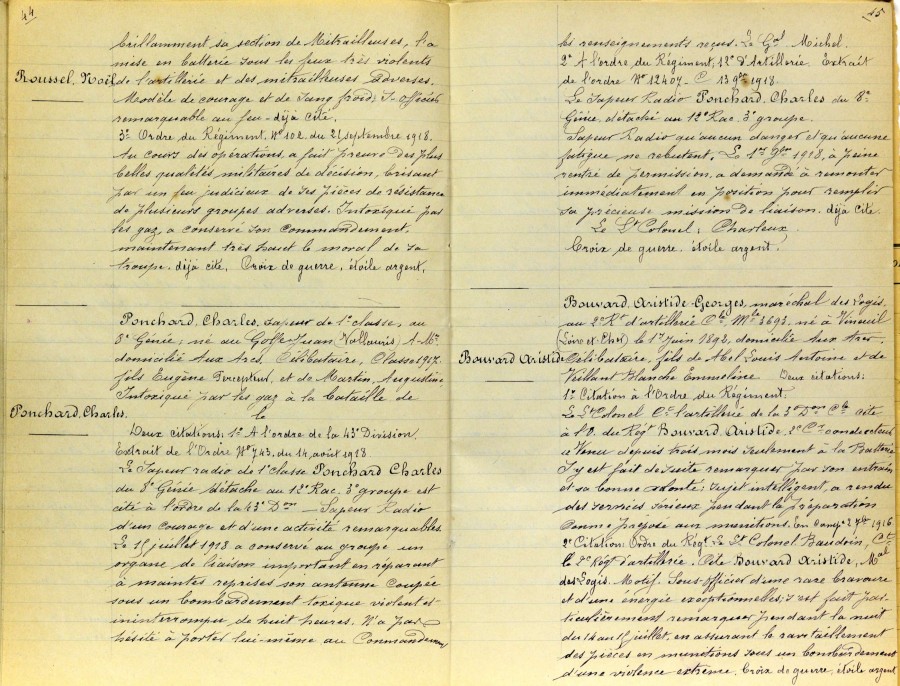 44
brillamment sa section de Mitrailleuses, l'a
mise en batterie sous les feux très violents
Roussel, Noël
de l'artillerie et des mitrailleuses adverses.
Modèle de courage et de sang froid; S-officier
remarquable au feu - déjà cité.
3º Ordre du Régiment, Nº 102, du 21 septembre 1918.
Au cours des opérations, a fait preuve des plus
belles qualités militaires de décision, brisant
par un feu judicieux de ses pièces de résistance
de plusieurs groupes adverses. Intoxiqué par
les gaz, a conservé son commandement,
maintenant très haut le moral de sa
troupe. déjà cité, Croix de guerre, étoile argent.
Ponchard, Charles, sapeur de 1e classe, au
8e Génie, né au Golfe-Juan Vallauris, A-Mes
domicilié aux Arcs, Célibataire, Classe 1917.
fils Eugène Percepteur, et de Martin, Augustine
Intoxiqué par les gaz à la bataille de
Ponchard, Charles.
le
Deux citations: 1º A l'ordre de la 43e Division.
Extrait de l'Ordre Nº 743, du 14 août 1918
Le Sapeur radio de 1e classe Ponchard Charles
du 8e Génie détaché au 12e Rac. 3e groupe est
cité à l'ordre de la 43e Don - Sapeur Radio
d'un courage et d'une activité remarquables.
Le 15 juillet 1918 a conservé au groupe un
organe de liaison important en réparant
à maintes reprises son antenne coupée
sous un bombardement toxique violent et
ininterrompu de huit heures. N'a pas
hésité à porter lui-même au Commandement
45
les renseignements reçus. Le Gal Michel.
2º A l'ordre du Régiment, 12e d'Artillerie. Extrait
de l'ordre Nº 12407. C 13 9bre 1918.
Le Sapeur Radio Ponchard, Charles du 8e
Génie, détaché au 12e Rac 3e groupe.
Sapeur Radio qu'aucun danger et qu'aucune
fatigue ne rebutent. Le 1er 9bre 1918, à peine
rentré de permission, a demandé à remonter
immédiatement en position pour remplir
sa précieuse mission de liaison. déjà cité
Le Lt Colonel, Charleux.
Croix de guerre. étoile argent.
Bouvard, Aristide-Georges, maréchal des Logis,
au 2e Rt d'artillerie Cle Mle 3693, né à Vineuil
(Loire-et-Cher) le 1er Juin 1892, domicilié Aux Arcs.
Bouvard Aristide
Célibataire, fils de Abel Louis Antoine et de
Villant Blanche Emmeline. Deux citations:
1º Citation à l'Ordre du Régiment:
Le Lt Colonel Ct l'artillerie de la 3e Don Cle cite
à l'O. du Régt Bouvard, Aristide, 2e Cr conducteur
Venu depuis trois mois seulement à la Batterie
s'y est fait de suite remarquer par son entrain
et sa bonne volonté; sujet intelligent, a rendu
des services sérieux pendant la préparation
comme préposé aux munitions. En camp. 27bre 1916
2e Citation: Ordre du Régt. Le Lt Colonel Baudoin, Ct
le 2e Régt d'artillerie. Cite Bouvard Aristide, Mal
des Logis. Motif. Sous-officier d'une rare bravoure
et d'une énergie exceptionnelles; s'est fait par-
ticulièrement remarquer pendant la nuit
du 14 au 15 juillet, en assurant le ravitaillement
des pièces en munitions sous un bombardement
d'une violence extrême. Croix de guerre, étoile argent